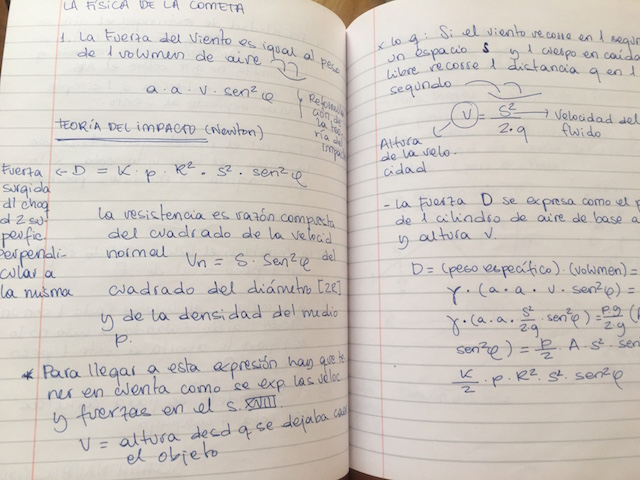 LA FÍSICA DE LA COMETA
1. La Fuerza del Viento es igual al peso
de 1 volumen de aire
a · a · v · sen²φ
Reformula
ción de
la teo
ría del
impacto
TEORÍA DEL IMPACTO (Newton)
Fuerza ← D = K · p · R² · S² · sen²φ
surgida
dl choq
d 2 su
perfic
perpendi
cular a
la misma
la resistencia es razón compuesta
del cuadrado de la velocid
normal Vn = S · Sen²φ del
cuadrado del diámetro [2R]
y de la densidad del medio
p.
* Para llegar a esta expresión hay que te
ner en cuenta como se exp. las veloc
y fuerzas en el s. XVIII.
V = altura desd q se dejaba caer
el objeto
x lo q: Si el viento recorre en 1 segun
un espacio S y 1 cuerpo en caída
libre recorre 1 distancia q en 1
segundo
V = S²/2·g → Velocidad del
fluido
Altura
de la velo
cidad
- La Fuerza D se expresa como el p
de 1 cilindro de aire de base a
y altura V.
D = (peso específico) · (volumen) =
γ · (a · a · v · sen²φ) =
γ · (a · a · S²/2·g · sen²φ) = p·g/2·g (
sen²φ) = p/2 · A · S² · sen
K/2 · p · R² · S² · sen²φ